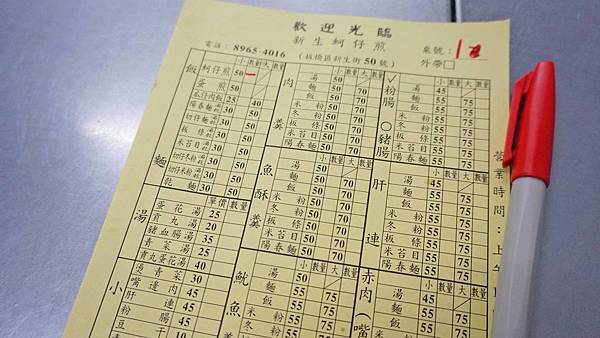 歡迎光臨
新生蚵仔煎
電話：8965-4016 (板橋區新生街50號)
桌號：
外帶□
飯 麵
小 數量 大 數量
蚵仔煎 50
蛋煎 50
瓜仔肉飯 25 40
陽春麵 30
切仔麵 30
板條 30
米苔目 30
切仔米粉 30
切仔冬粉 30
乾麵 30
湯
單價 數量
蛋花湯 25
貢丸湯 20
豬血湯 35
青菜湯 25
貢丸蛋花湯 40
小
燙青菜 30
嘴邊肉 45
肝連 45
粉腸 45
豆干
肉羹
小 數量 大 數量
湯 50
麵 50 70
飯 50 70
米粉 50 70
冬粉 50 70
板條 50 70
米苔目 50 70
陽春麵 50 70
魚酥羹
小 數量 大 數量
湯 50
麵 50 70
飯 50 70
米粉 50 70
冬粉 50 70
板條 50 70
米苔目 50 70
陽春麵 50 70
魷魚羹
小 數量 大 數量
湯 55
麵 55 75
飯 55 75
米粉 55 75
冬粉 55 75
板條 55 75
✓粉腸 ○豬腸
小 數量 大 數量
湯 45
麵 55 75
飯 55 75
米粉 55 75
冬粉 55 75
板條 55 75
米苔目 55 75
陽春麵 55 75
肝連
小 數量 大 數量
湯 45
麵 55 75
飯 55 75
米粉 55 75
冬粉 55 75
板條 55 75
米苔目 55 75
陽春麵 55 75
赤肉(嘴
小 數量 大 數量
湯 45
麵 55 75
飯 55 75
米粉 55 75
冬粉 55 75
營業時間：上午